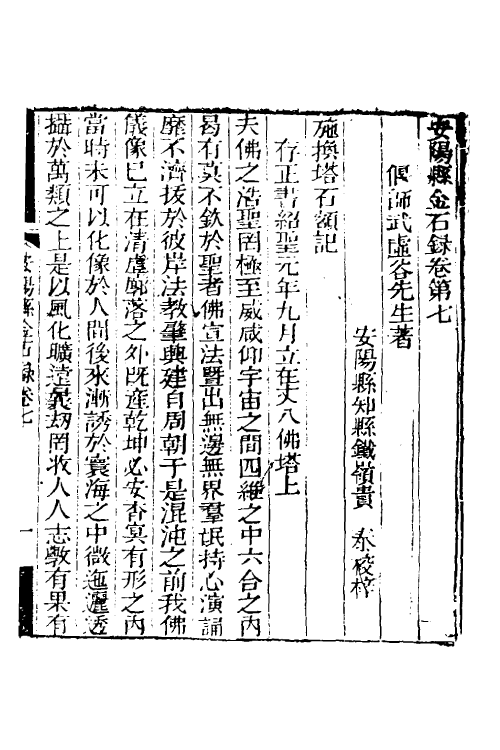 安陽縣金石錄卷第七
偃師武虛谷先生著
安陽縣知縣鐵嶺貴　泰校梓
施換塔石額記
存正書紹聖元年九月立在丈八佛塔上
夫佛之浩聖罔極至威咸仰宇宙之間四維之中六合之內
曷有莫不欽於聖者佛宣法暨出無邊無界羣氓持心演誦
靡不濟拔於彼岸法教肇興建自周朝于是混沌之前我佛
儀像已立在清虛廓落之外既産乾坤必安杳冥有形之內
當時未可以化像於人間後來漸誘於寰海之中微迤邐透
攝於萬類之上是以風化曠遠義刼罔收人人志斅有果有
安陽縣金石錄卷七
一